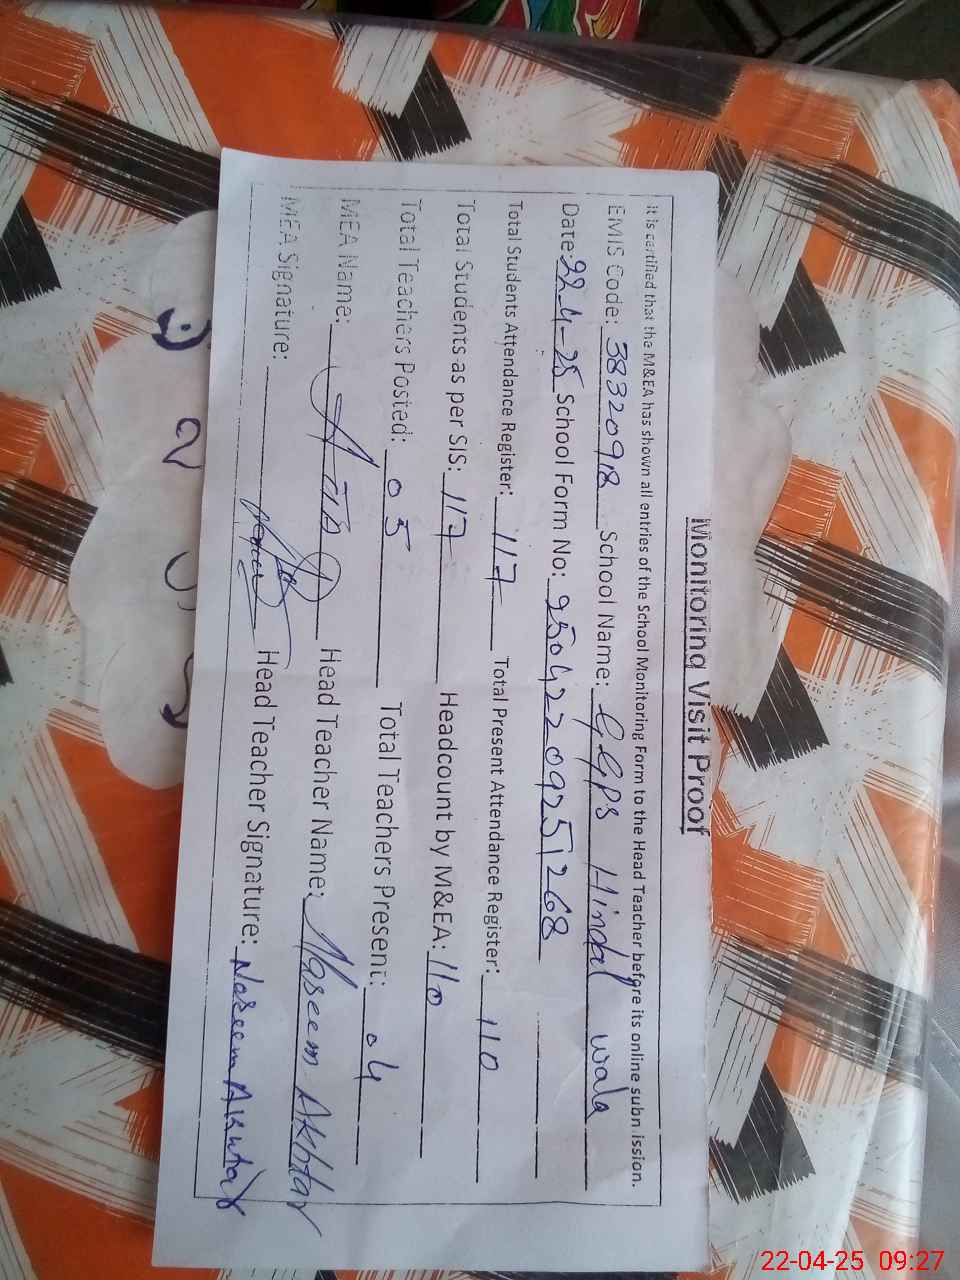 Monitoring Visit Proof
It is certified that the M&EA has shown all entries of the School Monitoring Form to the Head Teacher before its online submission.
EMIS Code: 38320918 School Name: GGPS Hindal wala
Date: 22-4-25 School Form No: 25042209251268
Total Students Attendance Register: 117 Total Present Attendance Register: 110
Total Students as per SIS: 117 Headcount by M&EA: 110
Total Teachers Posted: 05 Total Teachers Present: 04
MEA Name: Head Teacher Name: Naseem Akhtar
MEA Signature: Head Teacher Signature: Naseem Akhtar
22-04-25 09:27